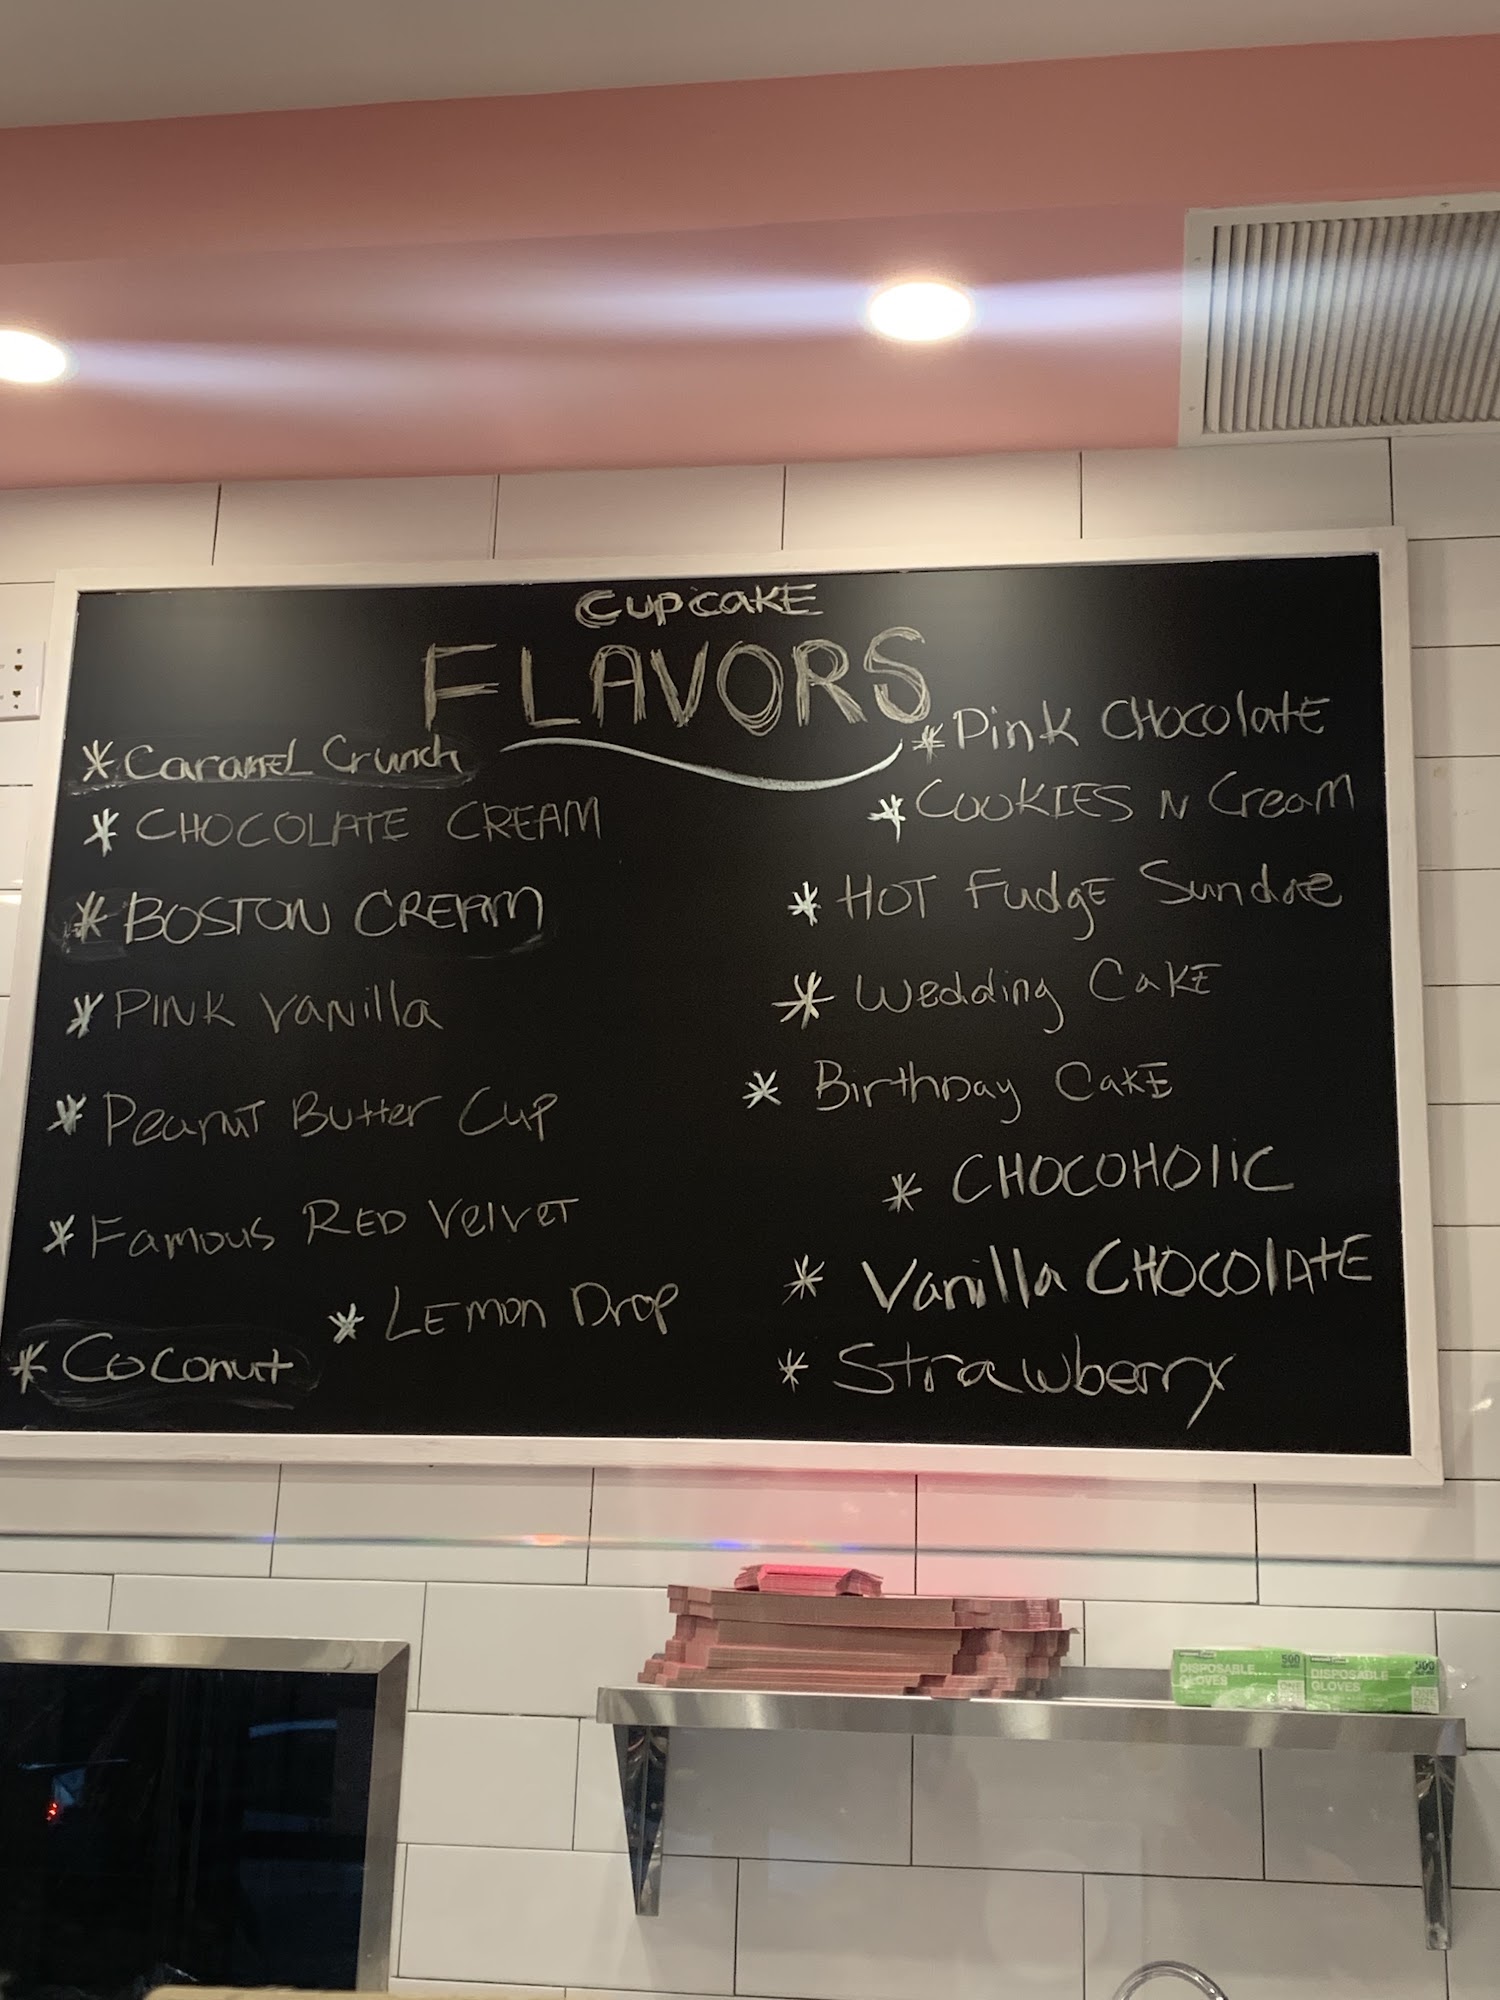 CupcaKE
FLAVORS
* CaramEL Crunch
* CHOCOLATE CREAM
* BOSTON CREAM
* PINK Vanilla
* PeanuT Butter Cup
* Famous RED VelveT
* LEmon Drop
* Coconut
* Pink CHocolatE
* COOKIES N Cream
* HOT FudgE Sundae
* Wedding CaKE
* BirthDay CaKE
* CHOCOHOliC
* Vanilla CHOCOlATE
* Strawberry
500
DISPOSABLE
GLOVES
ONE
SIZE
500
DISPOSABLE
GLOVES
ONE
SIZE